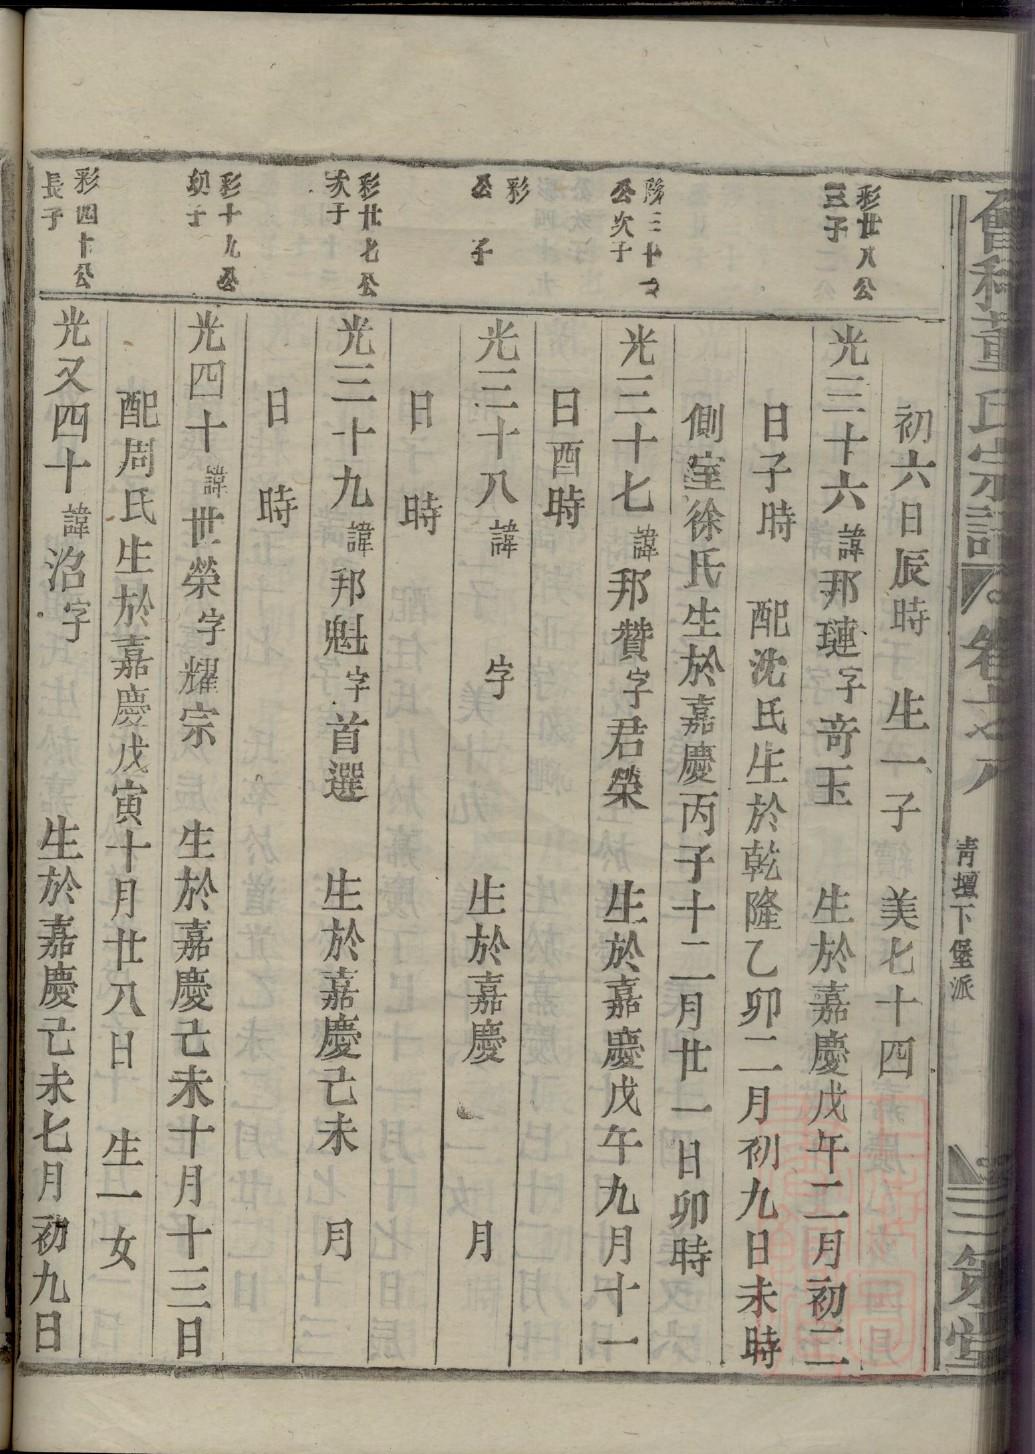 董氏宗譜
卷之八
青壇下堡派
三策堂
初六日辰時 生一子 美七十四
彩廿八公
三子
光三十六諱邦璉字奇玉 生於嘉慶戊午二月初二
日子時 配沈氏生於乾隆乙卯二月初九日未時
側室徐氏生於嘉慶丙子十二月廿一日卯時
公次子
光三十七諱邦贊字君榮 生於嘉慶戊午九月十一
日酉時
彩
公 子
光三十八諱 字 生於嘉慶 月
日 時
彩廿七公
次子
光三十九諱邦魁字首選 生於嘉慶己未 月
日 時
彩十九公
子
光四十諱世榮字耀宗 生於嘉慶己未十月十三日
配周氏生於嘉慶戊寅十月廿八日 生一女
彩四十公
長子
光又四十諱沼字 生於嘉慶己未七月初九日